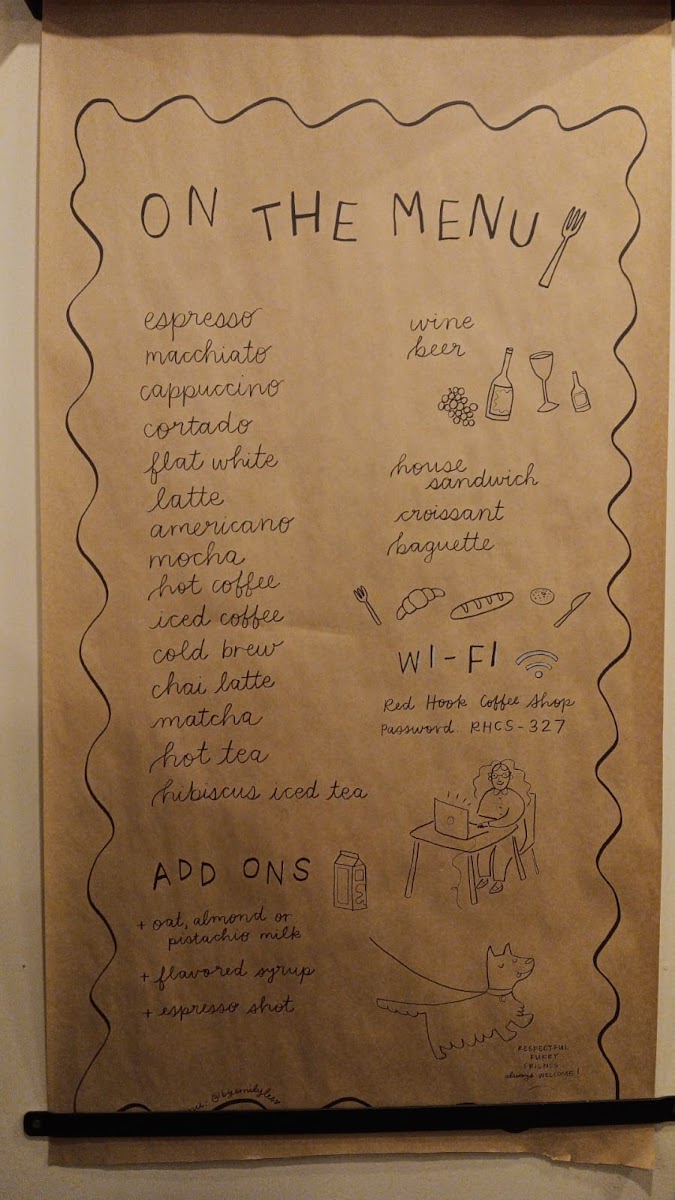 ON THE MENU
espresso
macchiato
cappuccino
cortado
flat white
latte
americano
mocha
hot coffee
iced coffee
cold brew
chai latte
matcha
hot tea
hibiscus iced tea
ADD ONS
+ oat, almond or
pistachio milk
+ flavored syrup
+ espresso shot
wine
beer
house
sandwich
croissant
baguette
WI-FI
Red Hook Coffee Shop
Password: RHCS-327
RESPECTFUL
FURRY
FRIENDS
always WELCOME!